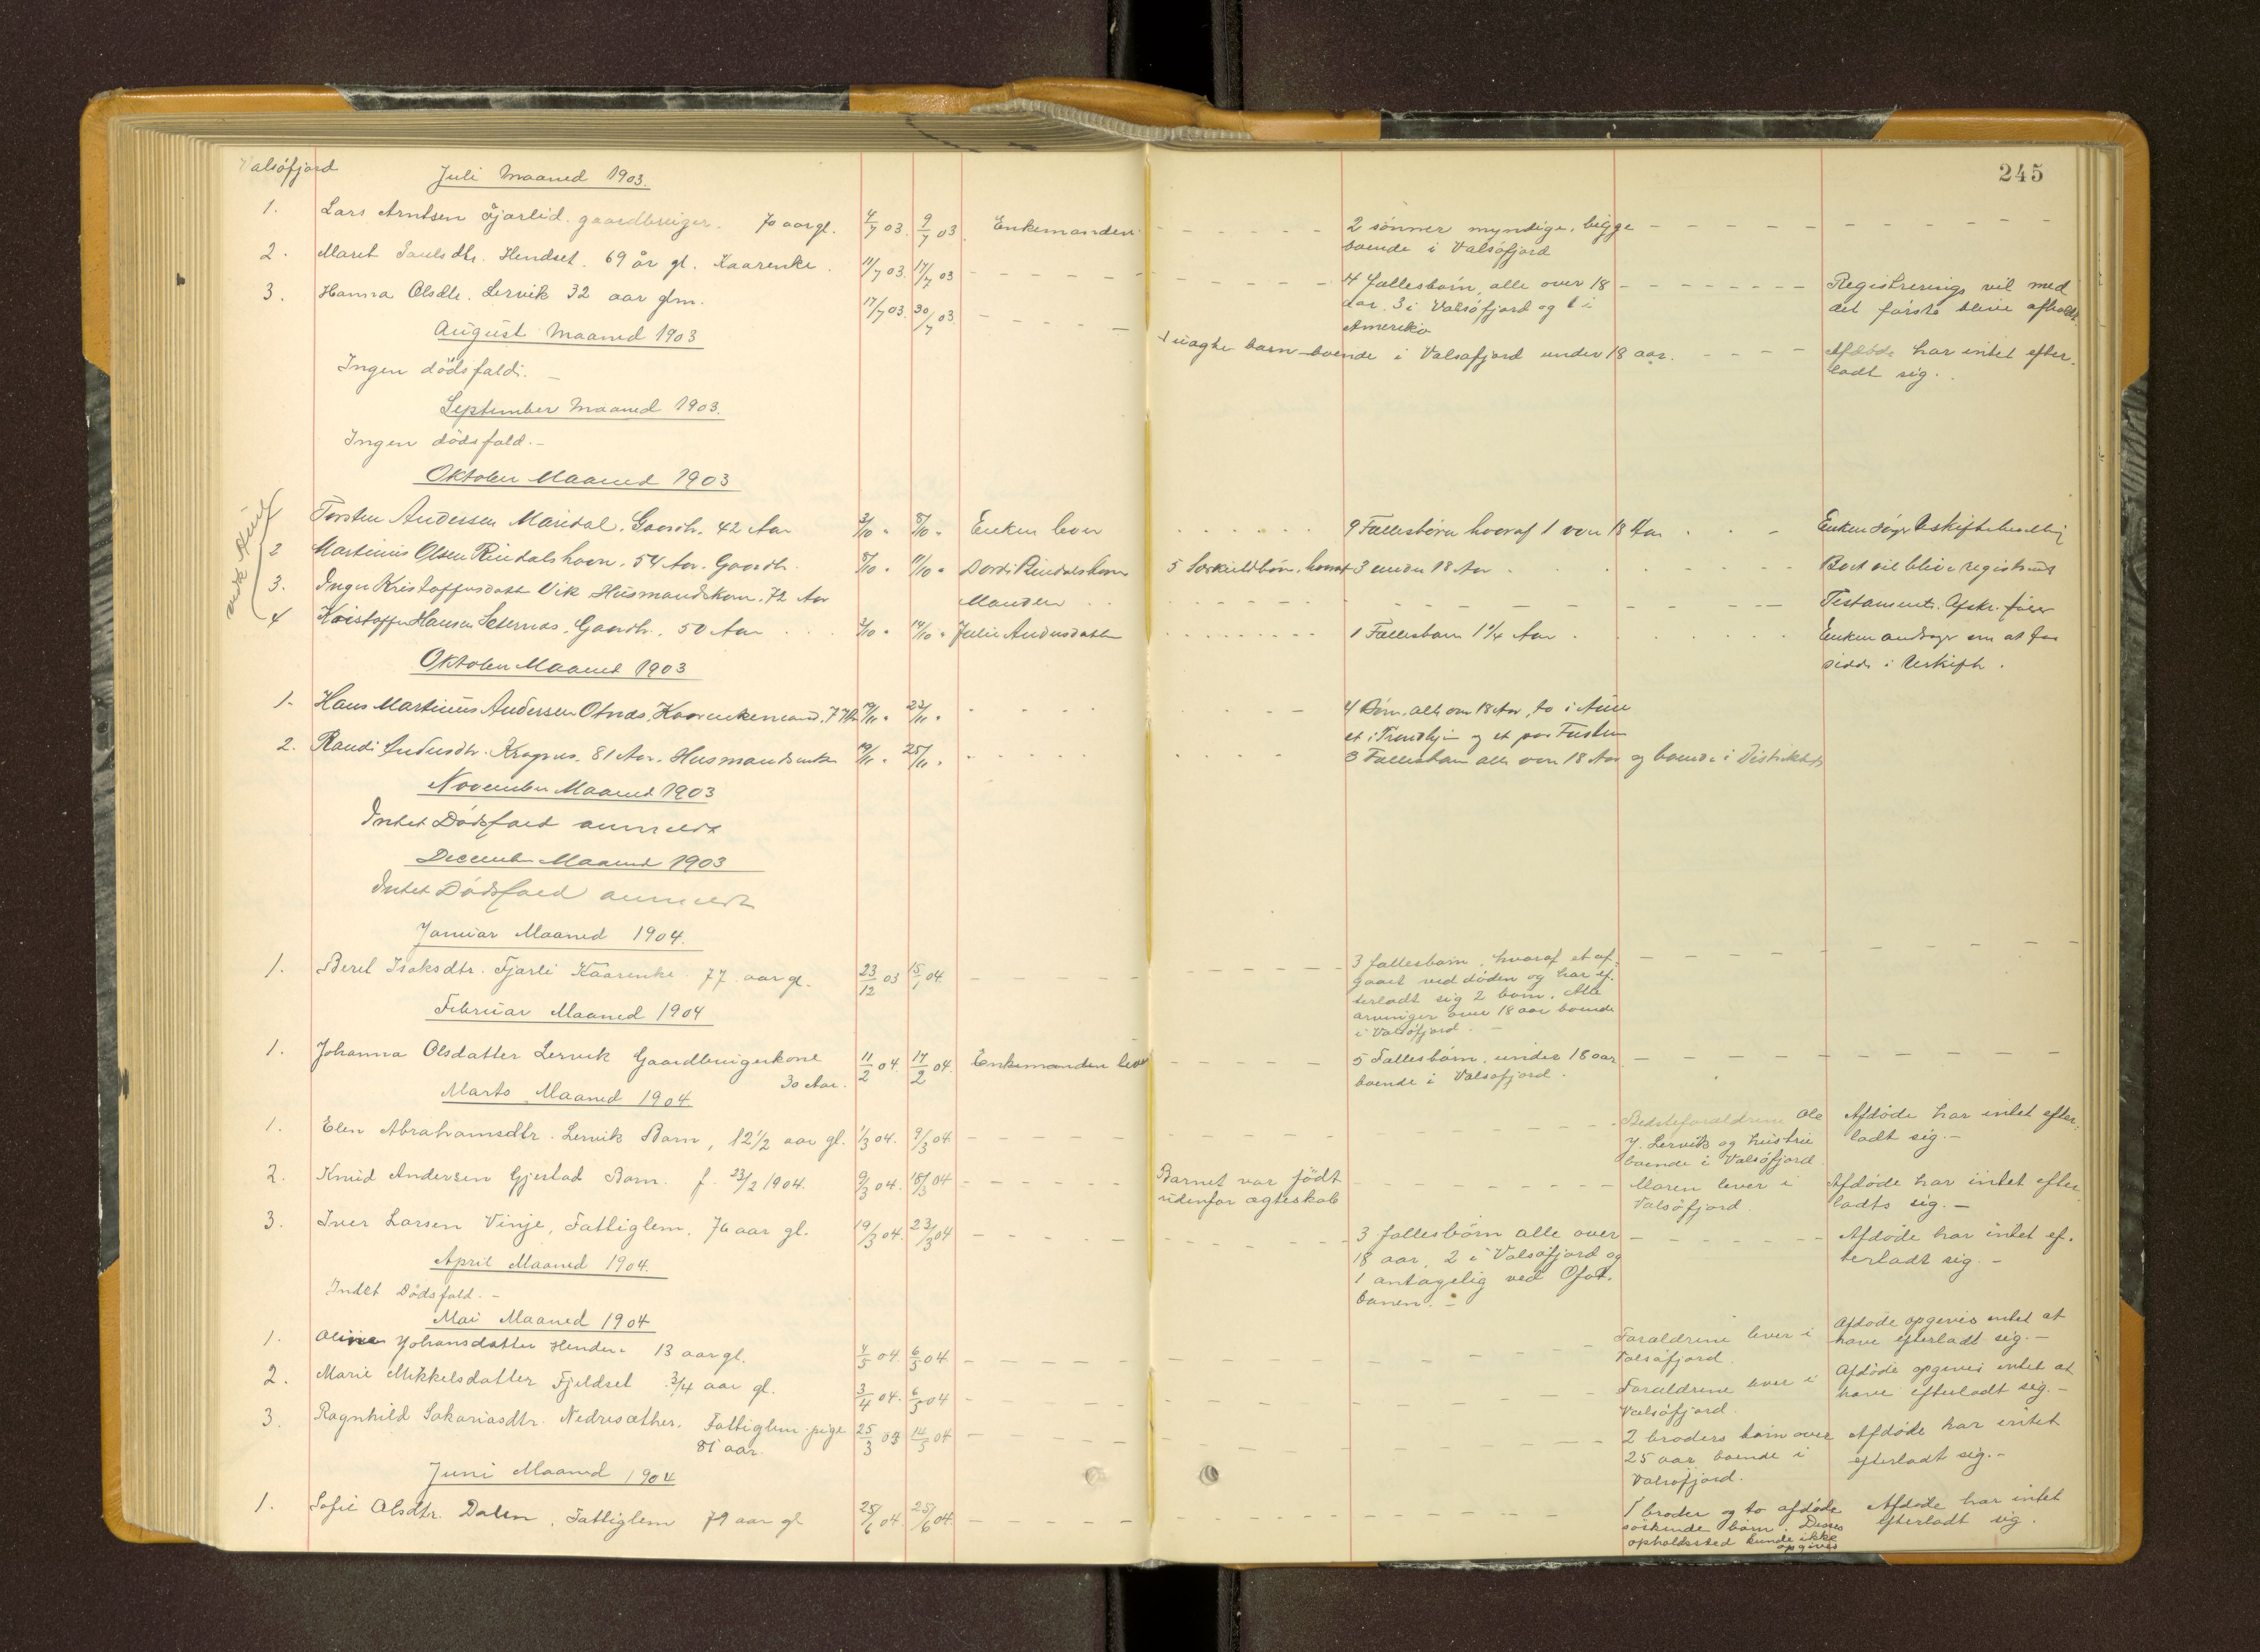 245
Valsöfjord
Juli Maaned 1903.
1. Lars Arntsen Fjærlid. gaardbruiger. 70 aar gl. 4/7 03. 9/7 03. Enkemanden 2 sønner myndige, begge
boende i Valsöfjord
2. Marit Paulsdtr. Hendset. 69 år gl. Kaarenke. 11/7 03. 17/7 03 4 fallesbörn, alle over 18 Registrerings vil med
aar. 3 i Valsöfjord og 1 i det förste blive afholdt.
Amerika
3. Hanna Olsdtr. Lervik 32 aar glm. 17/7 03. 30/7 03. uægte barn boende i Valsøfjord under 18 aar. Afdøde har intet efter-
ladt sig.
August Maaned 1903
Ingen dödsfald. –
September Maaned 1903.
Ingen dödsfald. –
Oktober Maaned 1903
1 Torsten Andersen Maridal. Gaardbr. 42 Aar 3/10 " 8/10 " Enken lever 9 Fællesbörn hvoraf 1 over 18 Aar
2 Martinius Olsen Rindalshavn. 54 Aar. Gaardbr. 8/10 " 11/10 " Dordi Rindalshavn 5 Særkuldbörn, hvoraf 3 under 18 Aar Boet vil blive registreret
3. Inger Kristoffersdatter Vik Husmandskone. 72 Aar Manden Testament. Afskr. følger
4 Kristoffer Hansen Seternæs, Gaardbr., 50 Aar 3/10 " 14/10 " Julie Andersdatter 1 Fællesbarn 1 1/4 Aar Enken andrager om at faa
sidde i Uskifte.
Oktober Maaned 1903
1. Hans Martinius Andersen Otnæs, Kaarenkemand. 77 Aar 19/11 " 23/11 " 4 Börn, alle over 18 Aar, to i Aure
et i Trondhjem og et paa Tusteren
2. Randi Andersdtr. Kragnes. 81 Aar. Husmandsenke 19/11 " 25/11 " 3 Fællesbarn alle over 18 Aar og boende i Distriktet
November Maaned 1903
Intet Dödsfald anmeldt
December Maaned 1903
Intet Dödsfald anmeldt
Januar Maaned 1904.
1. Beret Isaksdtr. Fjærli Kaarenke. 77 aar gl. 23/12 03 15/1 04. 3 fallesbörn, hvoraf et af-
gaaet ved døden og har ef-
terladt sig 2 børn. Alle
arvinger over 18 aar boende
i Valsöfjord. –
Februar Maaned 1904
1. Johanna Olsdatter Lervik Gaardbrugerkone 11/2 04. 17/2 04. Enkemanden lever 5 Fallesbörn, under 18 aar
30 Aar. boende i Valsøfjord.
Marts Maaned 1904
1. Elen Abrahamsdtr. Lervik Barn, 12 1/2 aar gl. 1/3 04. 9/3 04. Bedsteforældrene Ole Afdøde har intet efter-
J. Lervik og hustru ladt sig. –
boende i Valsöfjord
2. Knud Andersen Gjerstad Barn. f. 23/2 1904. 9/3 04. 18/3 04 Barnet var födt Moren lever i Afdøde har intet efter-
udenfor ægteskab Valsöfjord. ladts sig. –
3. Iver Larsen Vinje, Fattiglem. 76 aar gl. 19/3 04. 23/3 04 3 fallesbörn alle over Afdøde har intet ef-
18 aar, 2 i Valsøfjord og terladt sig. –
1 antagelig ved Ofot-
banen. –
April Maaned 1904.
Indet Dödsfald. –
Mai Maaned 1904
1. Johansdatter 13 aar gl. 4/5 04. 6/5 04. Foraldrene lever i Afdøde opgives intet at
Valsøfjord. have efterladt sig. –
2. Marie Mikkelsdatter Fjeldset 3/4 aar gl. 3/4 04. 6/5 04 Foraldrene lever i Afdøde opgives intet at
Valsöfjord. have efterladt sig. –
3. Ragnhild Sakariasdtr. Nedresæther. Fattiglem. pige 25/3 03 14/5 04 2 broders börn over Afdøde har intet
81 aar. 25 aar boende i efterladt sig. –
Valsöfjord.
Juni Maaned 1904
1. Sofie Olsdtr. Dalen, Fattiglem 79 aar gl 25/6 04. 25/6 04. 1 broder og to afdøde Afdøde har intet
söskende børn. Disses efterladt sig.
opholdssted kunde ikke
opgives